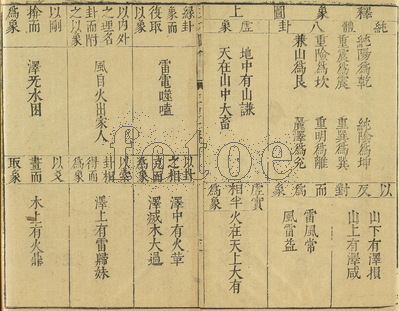 釋象圖上
純體八卦
純陽為乾
純陰為坤
重震為震
重巽為巽
重險為坎
重明為離
兼山為艮
麗澤為兌
虛象
地中有山謙
天在山中大畜
以反對而為象
山下有澤損
山上有澤咸
雷風常
風雷益
虛實
相半
為象
火在天上大有
綜卦
象而
後取
雷電噬嗑
以內外
之理名
卦而附
之以象
風自火出家人
以剛
揜而
為象
澤无水困
以卦
之相
克而
為象
澤中有火革
澤滅木大過
卦相
得而
為象
澤上有雷歸妹
以爻
畫而
取象
木上有火鼎
fotoe